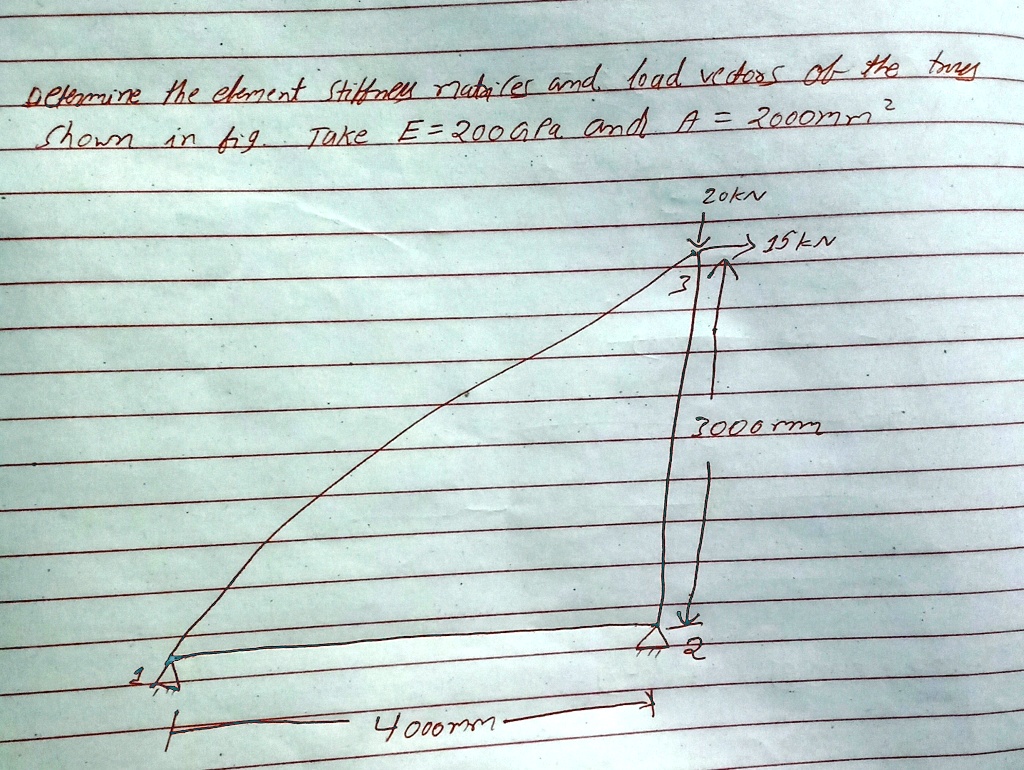 Determine the element stiffness matrices and load vectors of the truss
shown in fig. Take E = 200 GPa and A = 2000mm²
20kN
15kN
3
3000mm
1
2
4000mm